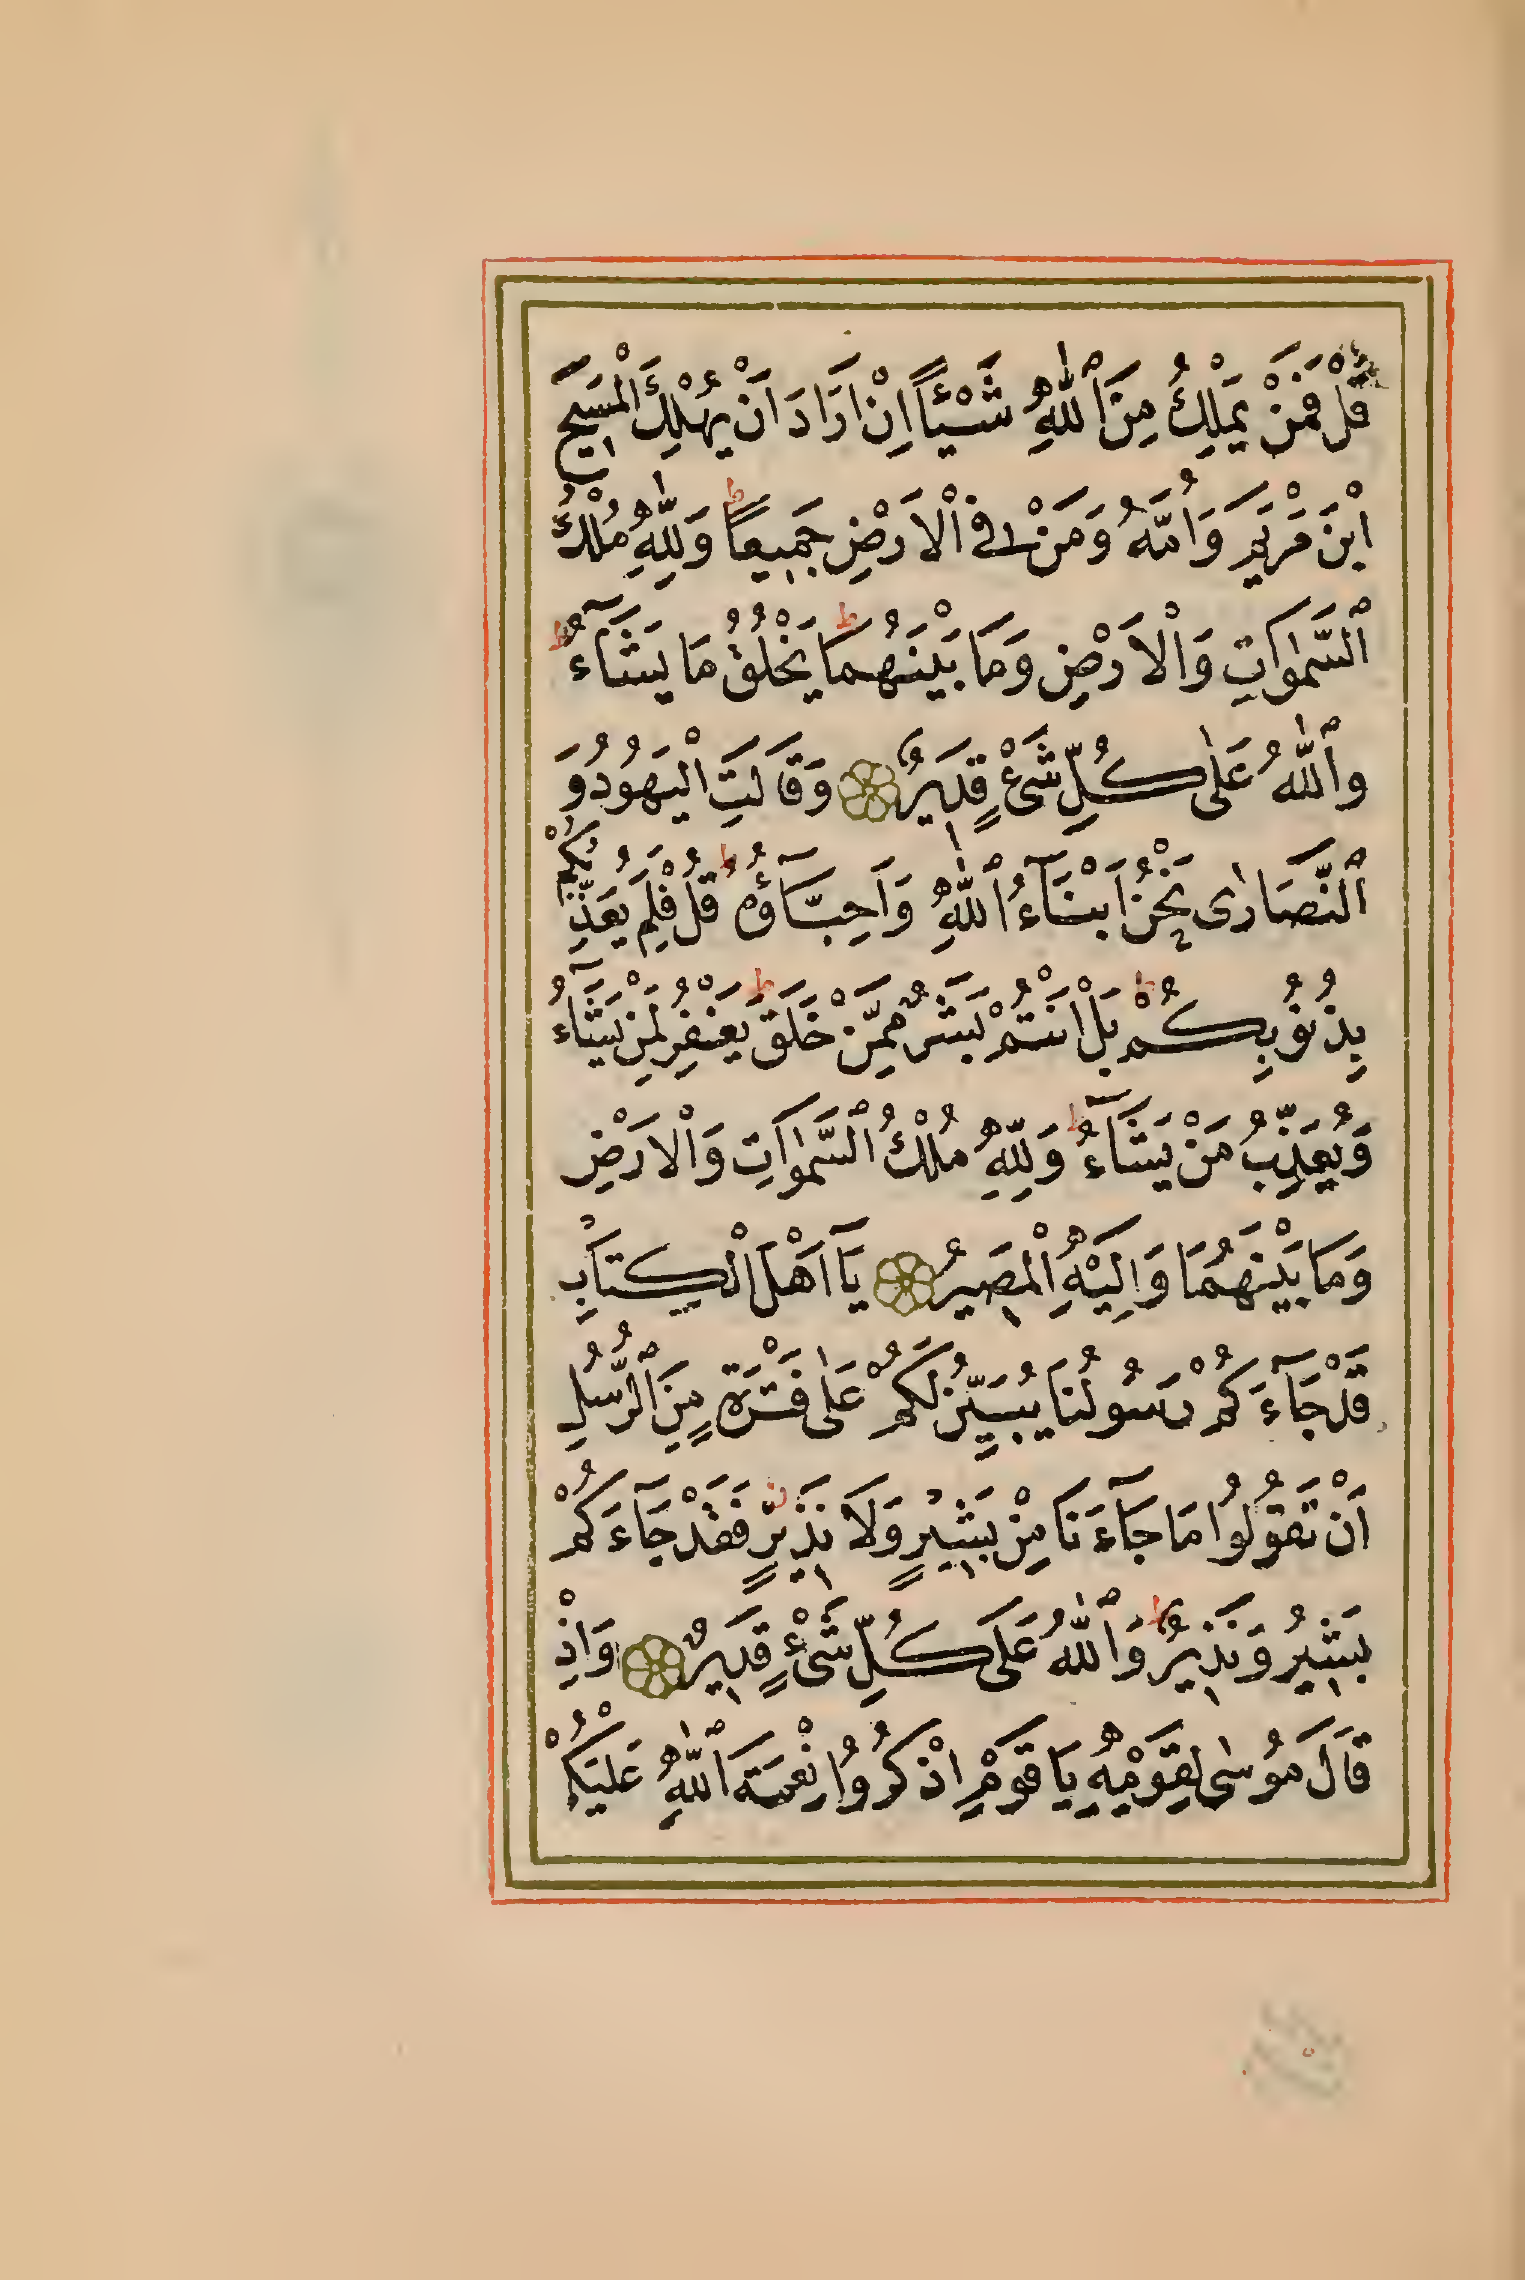 قُلْ فَمَنْ يَمْلِكُ مِنَ ٱللّٰهِ شَيْـًٔا اِنْ اَرَادَ اَنْ يُهْلِكَ الْمَسِيحَ
ابْنَ مَرْيَمَ وَاُمَّهُ وَمَنْ فِى الْاَرْضِ جَمِيعًا ط وَلِلّٰهِ مُلْكُ
ٱلسَّمٰوَاتِ وَالْاَرْضِ وَمَا بَيْنَهُمَا ط يَخْلُقُ مَا يَشَآءُ ط
وٱللّٰهُ عَلٰى كُلِّ شَىْءٍ قَدِيرٌ وَقَالَتِ الْيَهُودُ وَ
ٱلنَّصَارٰى نَحْنُ اَبْنَآءُ ٱللّٰهِ وَاَحِبَّآؤُهُ ط قُلْ فَلِمَ يُعَذِّبُكُمْ
بِذُنُوبِكُمْ ط بَلْ اَنْتُمْ بَشَرٌ مِمَّنْ خَلَقَ ط يَغْفِرُ لِمَنْ يَشَآءُ
وَيُعَذِّبُ مَنْ يَشَآءُ ط وَلِلّٰهِ مُلْكُ ٱلسَّمٰوَاتِ وَالْاَرْضِ
وَمَا بَيْنَهُمَا وَاِلَيْهِ الْمَصِيرُ يَآ اَهْلَ الْكِتَابِ
قَدْ جَآءَكُمْ رَسُولُنَا يُبَيِّنُ لَكُمْ عَلٰى فَتْرَةٍ مِنَ ٱلرُّسُلِ
اَنْ تَقُولُوا مَا جَآءَنَا مِنْ بَشِيرٍ وَلَا نَذِيرٍ ز فَقَدْ جَآءَكُمْ
بَشِيرٌ وَنَذِيرٌ ط وَٱللّٰهُ عَلَى كُلِّ شَىْءٍ قَدِيرٌ وَاِذْ
قَالَ مُوسٰى لِقَوْمِهِ يَا قَوْمِ اذْكُرُوا نِعْمَةَ ٱللّٰهِ عَلَيْكُمْ